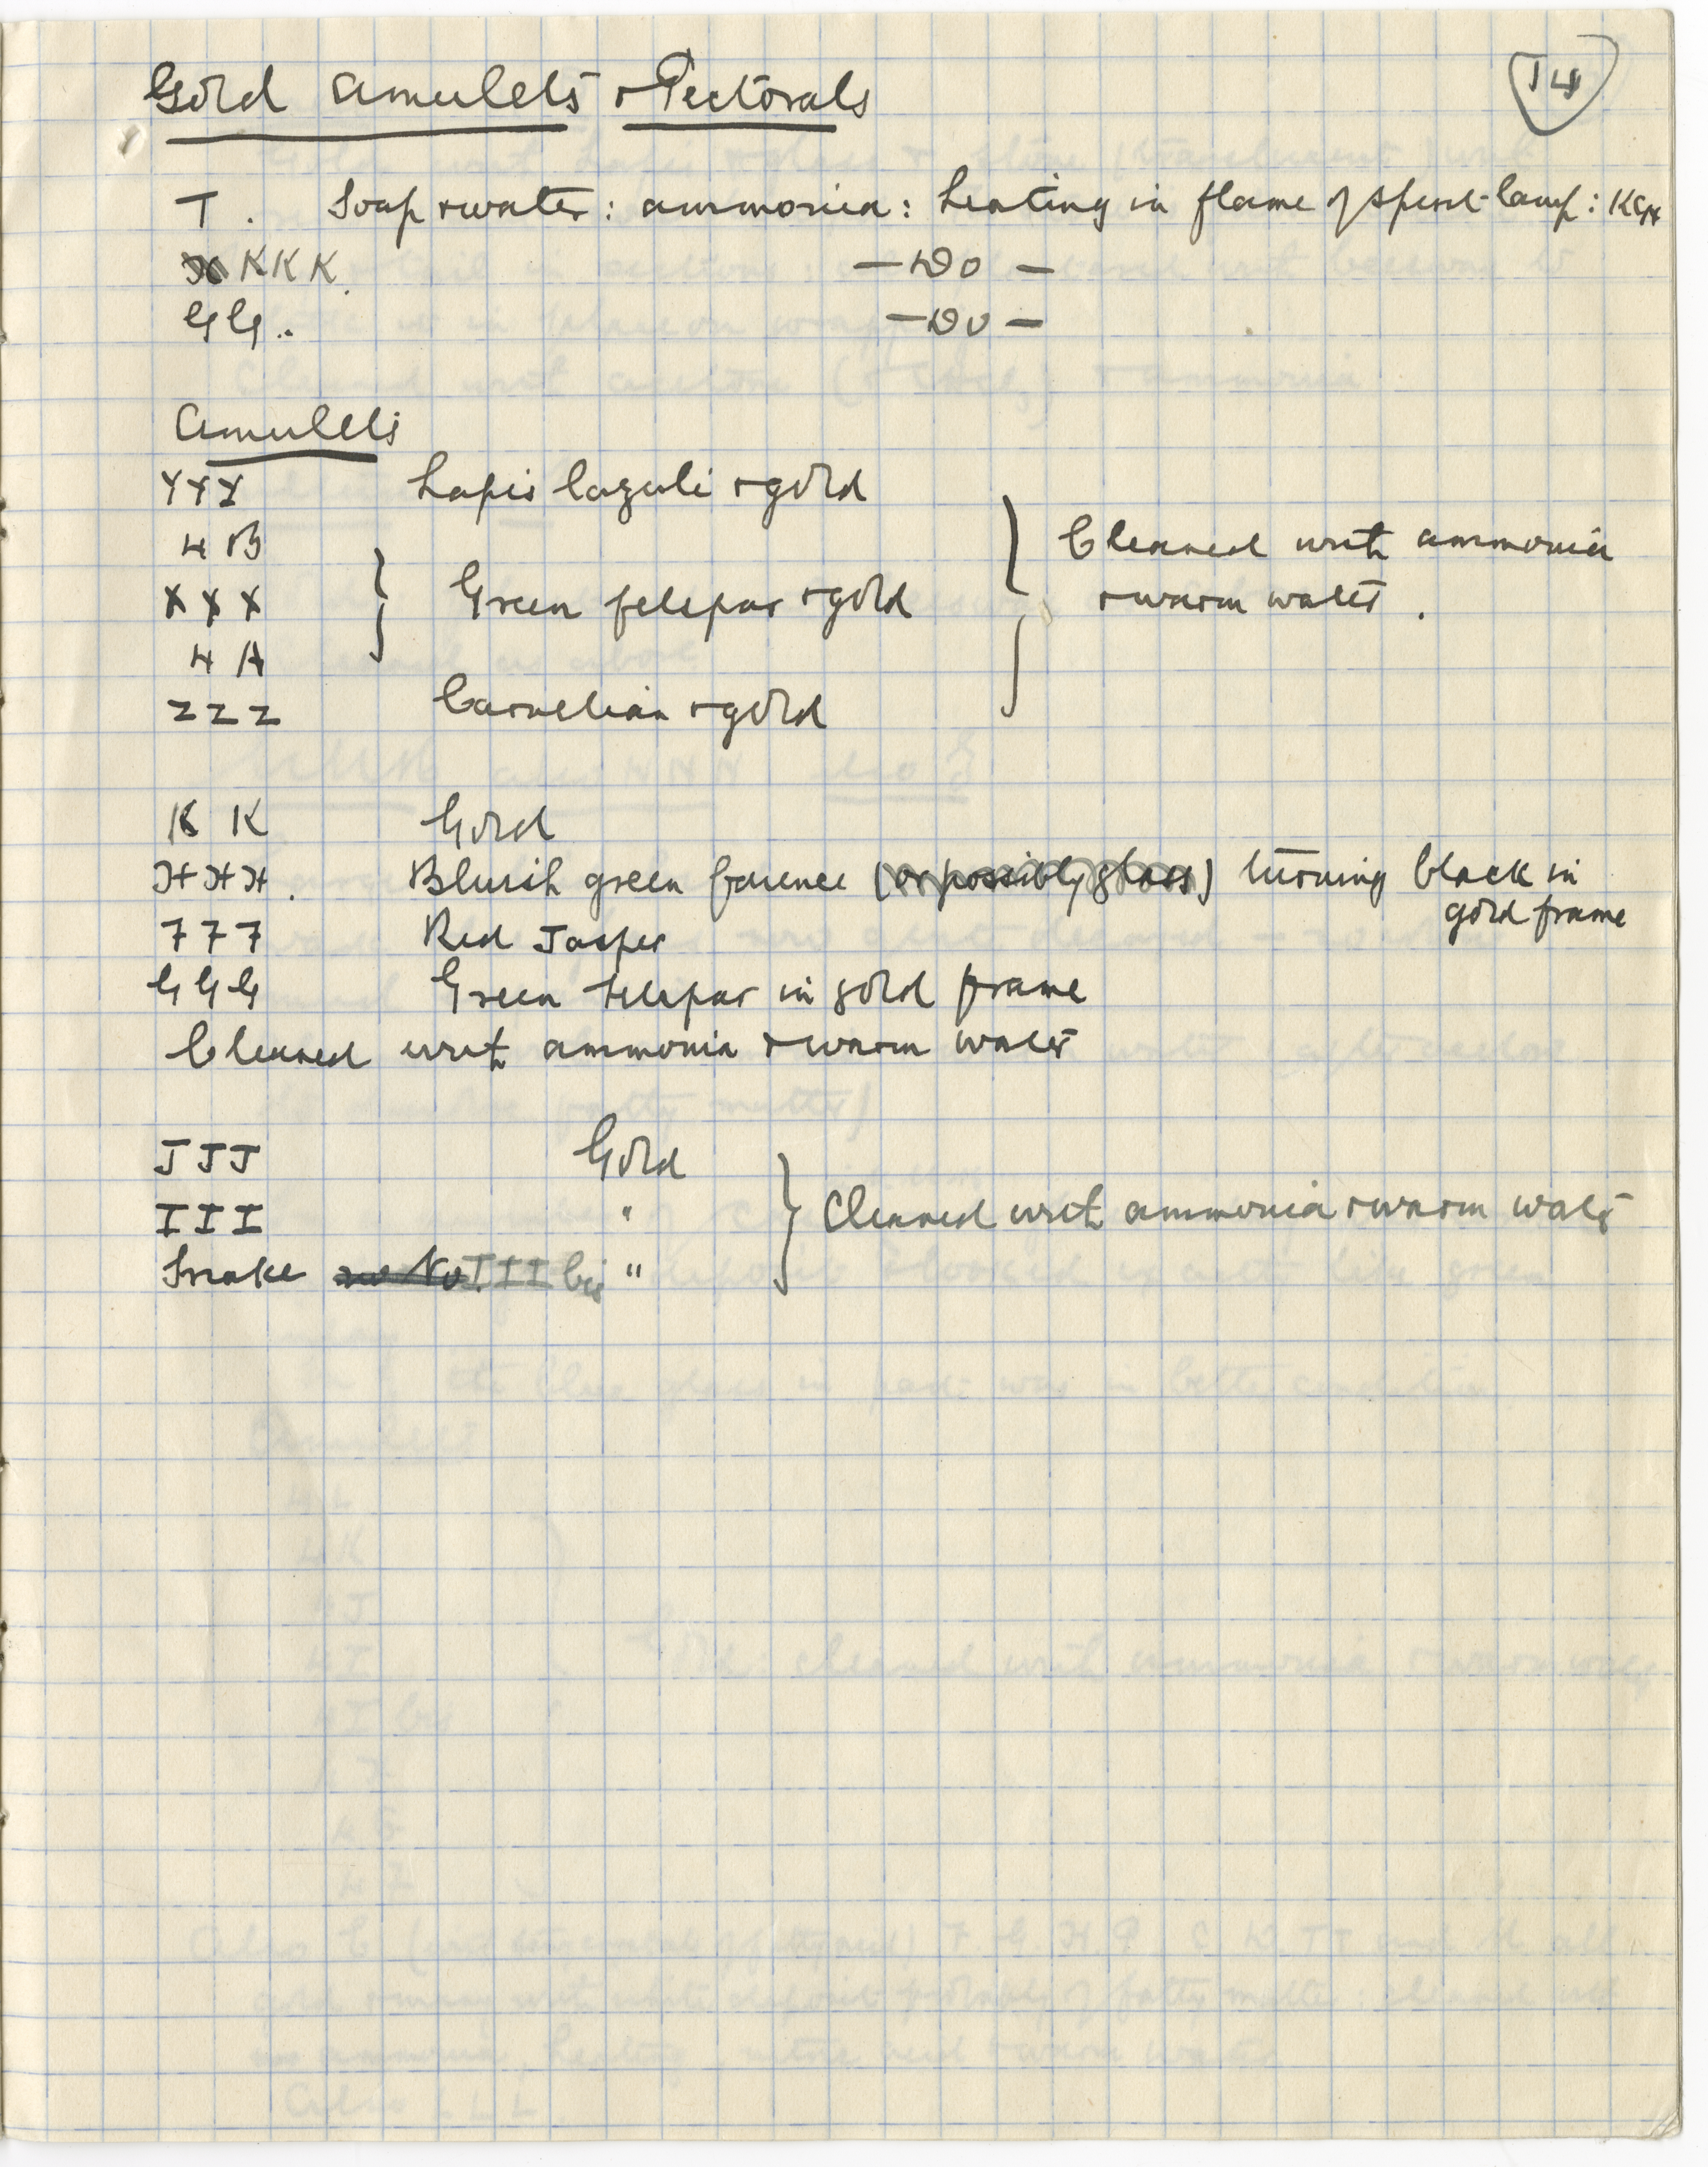 Gold amulets + Pectorals
14
T. Soap + water: ammonia: heating in flame of spirit-lamp: KCN
KKK. — Do —
GG.. — Do —
Amulets
YYY Lapis lazuli + gold
4B
XXX Green felspar + gold
4A
ZZZ Carnelian + gold
Cleaned with ammonia
+ warm water.
KK Gold
HHH. Bluish green faience (or possibly glass) turning black in
gold frame
777 Red Jasper
GGG Green felspar in gold frame
Cleaned with ammonia + warm water
JJJ Gold
III "
Snake no No III bis "
Cleaned with ammonia + warm water